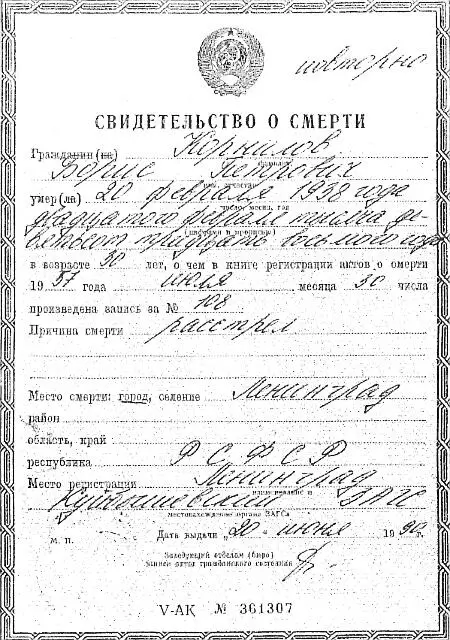 повторно
СВИДЕТЕЛЬСТВО О СМЕРТИ
Гражданин (ка) Корнилов
фамилия
Борис Петрович
имя, отчество
умер(ла) 20 февраля 1938 года
число, месяц, год
двадцатого февраля тысяча де-
(цифрами и прописью)
вятьсот тридцать восьмого года
в возрасте 30 лет, о чем в книге регистрации актов о смерти
1957 года июля месяца 30 числа
произведена запись за № 108
Причина смерти расстрел
Место смерти: город, селение Ленинград
район
область, край
республика РСФСР
Место регистрации Ленинград
наименование и
Куйбышевский ЗАГС
местонахождение органа ЗАГСа
м. п. Дата выдачи „20" июня 1990 г.
Заведующий отделом (бюро)
записи актов гражданского состояния
V-АК № 361307